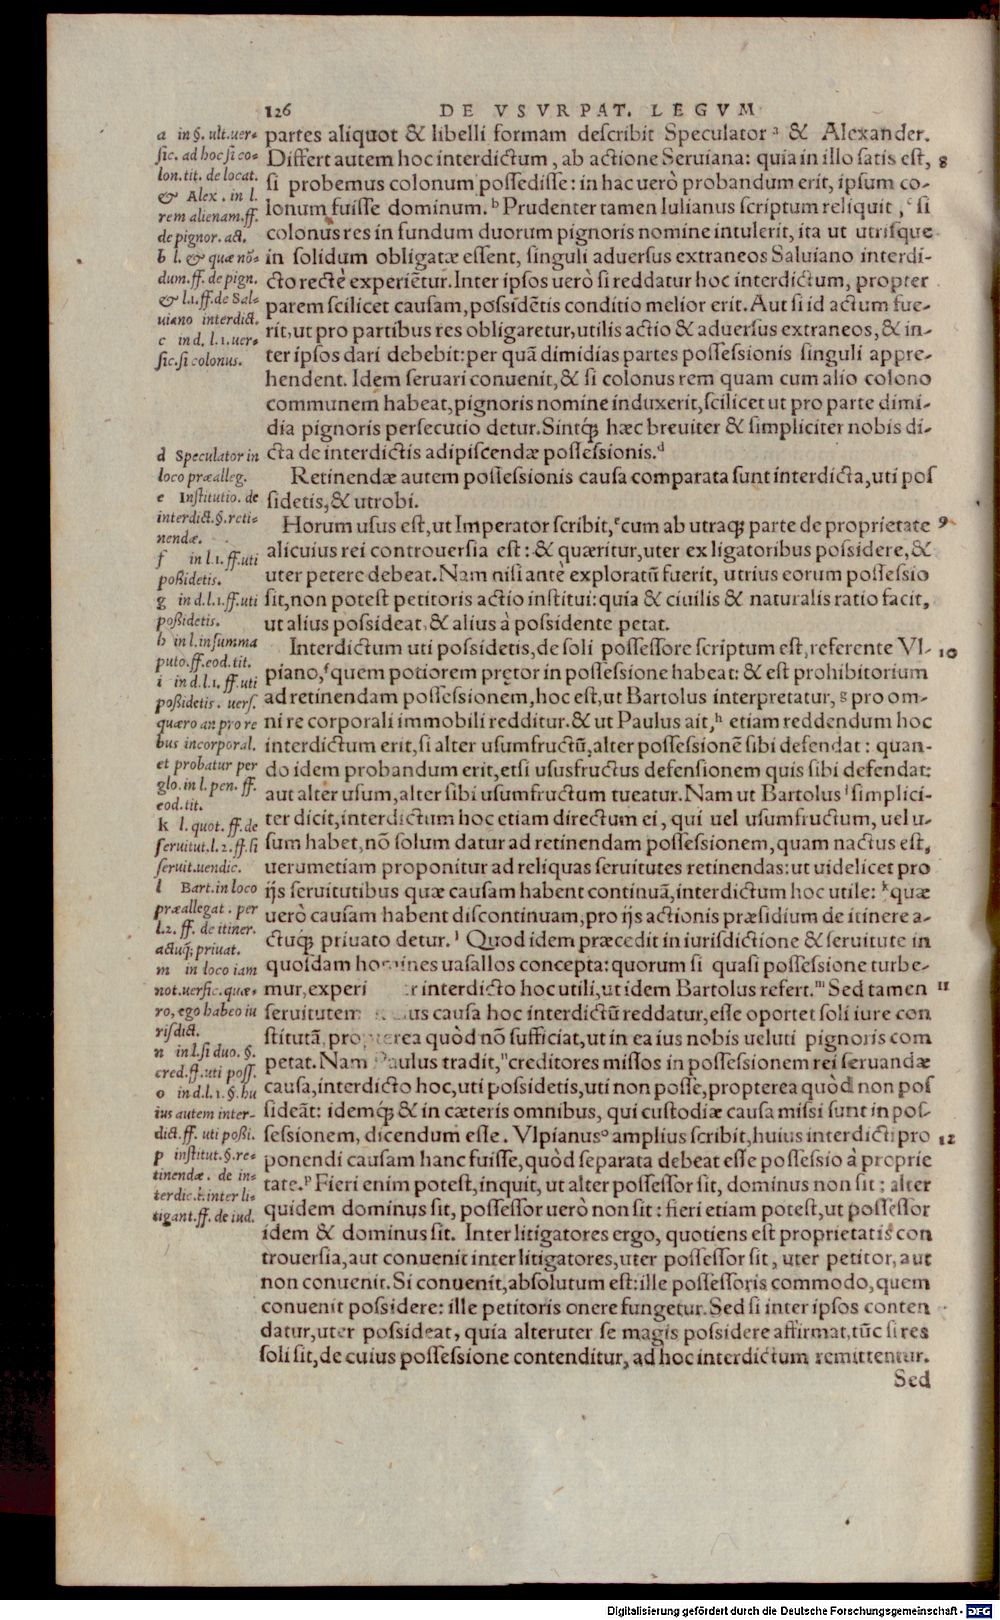 126 DE VSVRPAT. LEGVM
partes aliquot & libelli formam describit Speculator ᵃ & Alexander.
Differt autem hoc interdictum, ab actione Seruiana: quia in illo satis est, 8
si probemus colonum possedisse: in hac uerò probandum erit, ipsum co-
lonum fuisse dominum.ᵇ Prudenter tamen Iulianus scriptum reliquit,ᶜ si
colonus res in fundum duorum pignoris nomine intulerit, ita ut utrisque
in solidum obligatæ essent, singuli aduersus extraneos Saluiano interdi-
cto rectè experiẽtur. Inter ipsos uerò si reddatur hoc interdictum, propter
parem scilicet causam, possidẽtis conditio melior erit. Aut si id actum fue-
rit, ut pro partibus res obligaretur, utilis actio & aduersus extraneos, & in-
ter ipsos dari debebit: per quã dimidias partes possessionis singuli appre-
hendent. Idem seruari conuenit, & si colonus rem quam cum alio colono
communem habeat, pignoris nomine induxerit, scilicet ut pro parte dimi-
dia pignoris persecutio detur. Sintq́; hæc breuiter & simpliciter nobis di-
cta de interdictis adipiscendæ possessionis.ᵈ
Retinendæ autem possessionis causa comparata sunt interdicta, uti pos
sidetis, & utrobi.
Horum usus est, ut Imperator scribit,ᵉ cum ab utraq; parte de proprietate 9
alicuius rei controuersia est: & quæritur, uter ex ligatoribus possidere, &
uter petere debeat. Nam nisi antè exploratũ fuerit, utrius eorum possessio
sit, non potest petitoris actio institui: quia & ciuilis & naturalis ratio facit,
ut alius possideat, & alius à possidente petat.
Interdictum uti possidetis, de soli possessore scriptum est, referente Vl- 10
piano,ᶠ quem potiorem prętor in possessione habeat: & est prohibitorium
ad retinendam possessionem, hoc est, ut Bartolus interpretatur, ᵍ pro om-
ni re corporali immobili redditur. & ut Paulus ait,ʰ etiam reddendum hoc
interdictum erit, si alter usumfructũ, alter possessionẽ sibi defendat: quan-
do idem probandum erit, etsi ususfructus defensionem quis sibi defendat:
aut alter usum, alter sibi usumfructum tueatur. Nam ut Bartolus ⁱ simplici-
ter dicit, interdictum hoc etiam directum ei, qui uel usumfructum, uel u-
sum habet, nõ solum datur ad retinendam possessionem, quam nactus est,
uerumetiam proponitur ad reliquas seruitutes retinendas: ut uidelicet pro
ijs seruitutibus quæ causam habent continuã, interdictum hoc utile: ᵏ quæ
uerò causam habent discontinuam, pro ijs actionis præsidium de itinere a-
ctuq́; priuato detur.ˡ Quod idem præcedit in iurisdictione & seruitute in
quosdam homines uasallos concepta: quorum si quasi possessione turbe-
mur, experi r interdicto hoc utili, ut idem Bartolus refert.ᵐ Sed tamen 11
seruitutem us causa hoc interdictũ reddatur, esse oportet soli iure con
stitutã, propterea quòd nõ sufficiat, ut in ea ius nobis ueluti pignoris com
petat. Nam Paulus tradit,ⁿ creditores missos in possessionem rei seruandæ
causa, interdicto hoc, uti possidetis, uti non posse, propterea quòd non pos
sideãt: idemq́; & in cæteris omnibus, qui custodiæ causa missi sunt in pos-
sessionem, dicendum esse. Vlpianusᵒ amplius scribit, huius interdicti pro 12
ponendi causam hanc fuisse, quòd separata debeat esse possessio à proprie
tate.ᵖ Fieri enim potest, inquit, ut alter possessor sit, dominus non sit: alter
quidem dominus sit, possessor uerò non sit: fieri etiam potest, ut possessor
idem & dominus sit. Inter litigatores ergo, quotiens est proprietatis con
trouersia, aut conuenit inter litigatores, uter possessor sit, uter petitor, aut
non conuenit. Si conuenit, absolutum est: ille possessoris commodo, quem
conuenit possidere: ille petitoris onere fungetur. Sed si inter ipsos conten
datur, uter possideat, quia alteruter se magis possidere affirmat, tũc si res
soli sit, de cuius possessione contenditur, ad hoc interdictum remittentur.
Sed
a in §. ult. uer-
sic. ad hoc si co-
lon. tit. de locat.
& Alex. in l.
rem alienam. ff.
de pignor. act.
b l. & quæ nõ-
dum. ff. de pign.
& l.1. ff. de Sal-
uiano interdict.
c in d. l.1. uer-
sic. si colonus.
d Speculator in
loco præalleg.
e Institutio. de
interdict. §. reti-
nendæ.
f in l.1. ff. uti
possidetis.
g in d. l.1. ff. uti
possidetis.
h in l. in summa
puto. ff. eod. tit.
i in d. l.1. ff. uti
possidetis. uers.
quæro an pro re
bus incorporal.
et probatur per
glo. in l. pen. ff.
eod. tit.
k l. quot. ff. de
seruitut. l.2. ff. si
seruit. uendic.
l Bart. in loco
præallegat. per
l.2. ff. de itiner.
actuq; priuat.
m in loco iam
not. uersic. quæ-
ro, ego habeo iu
risdict.
n in l. si duo. §.
cred. ff. uti poss.
o in d. l.1. §. hu
ius autem inter-
dict. ff. uti possi.
p institut. §. re-
tinendæ. de in-
terdic. & inter li-
tigant. ff. de iud.
Digitalisierung gefördert durch die Deutsche Forschungsgemeinschaft - DFG